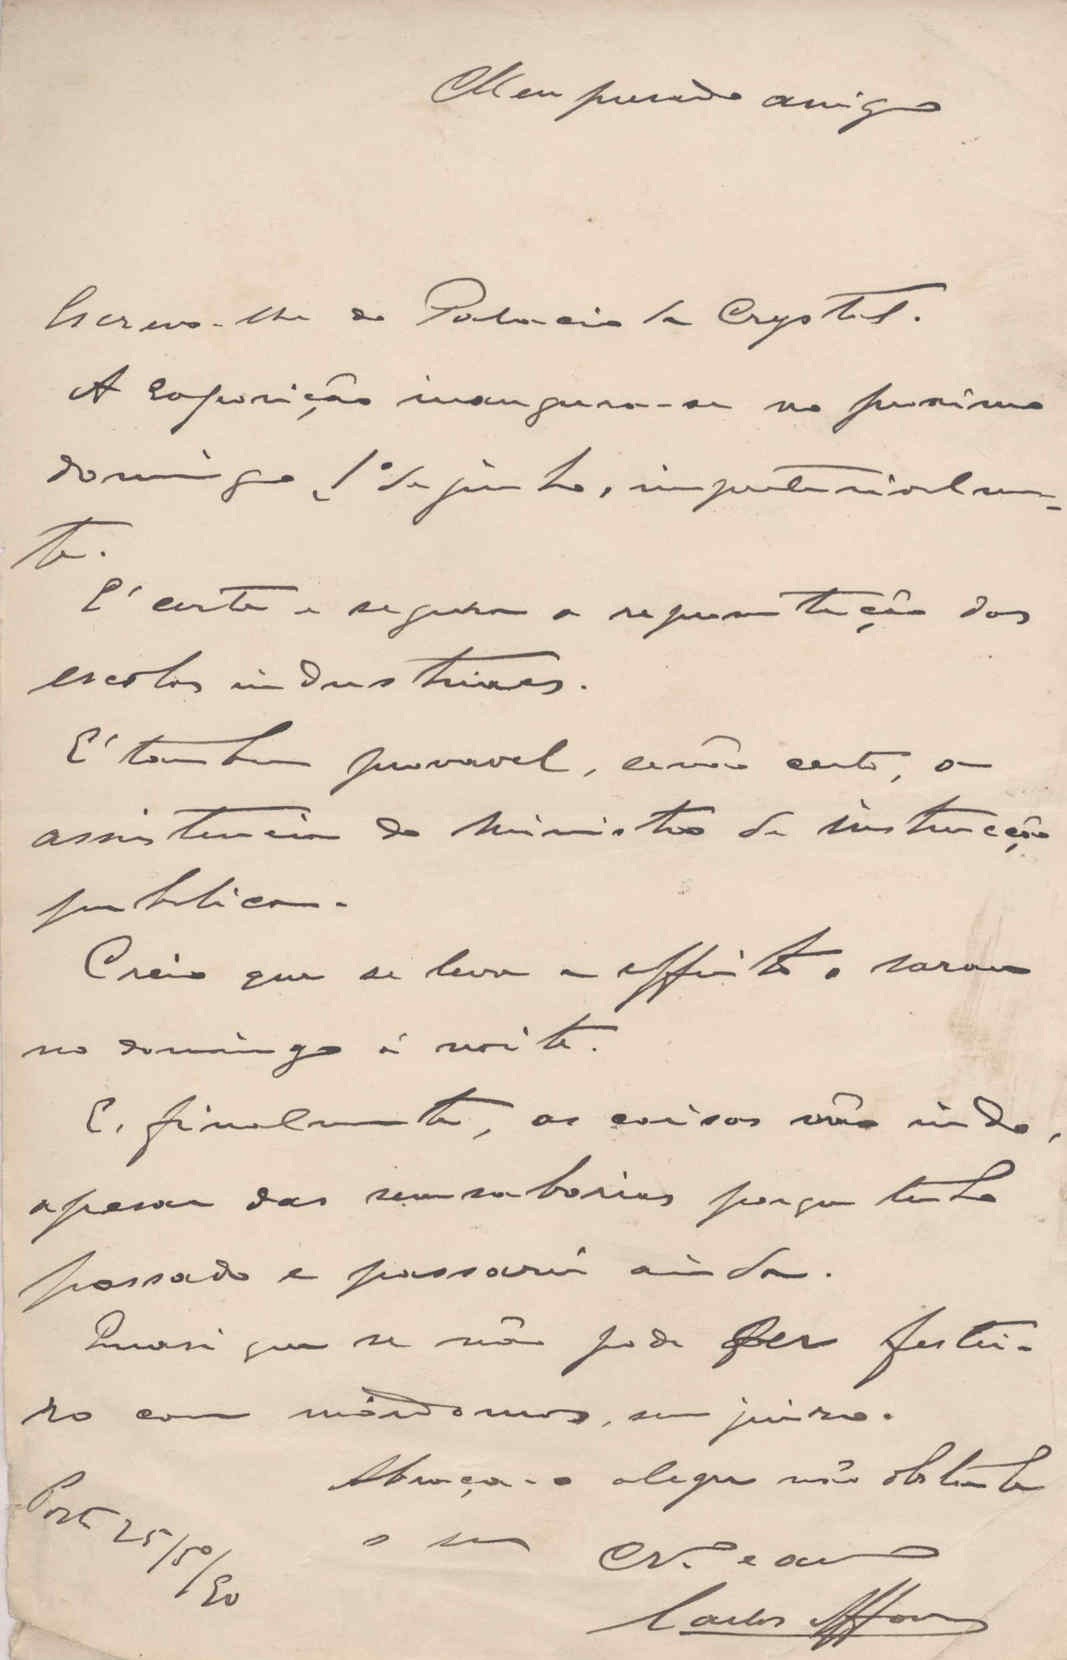 Meu presado amigo
Escrevo-lhe do Palacio de Crystal.
A Exposição inaugura-se no proximo
domingo, 1º de junho, impreterivelmen-
te.
E' certa e segura a representação das
escolas industriaes.
E' tambem provavel, senão certo, a
assistencia do Ministro de instrucção
publica.
Creio que se leva a effeito o sarau
no domingo á noite.
E, finalmente, as coisas vão indo,
apesar das semsaborias porque tenho
passado e passarei ainda.
Quasi que se não pode ser festei-
ro com mórdomos, sem juizo.
Abraça-o alegre não obstante
o seu Cr.º e am
Carlos Affonso
Porto 25/5º/90